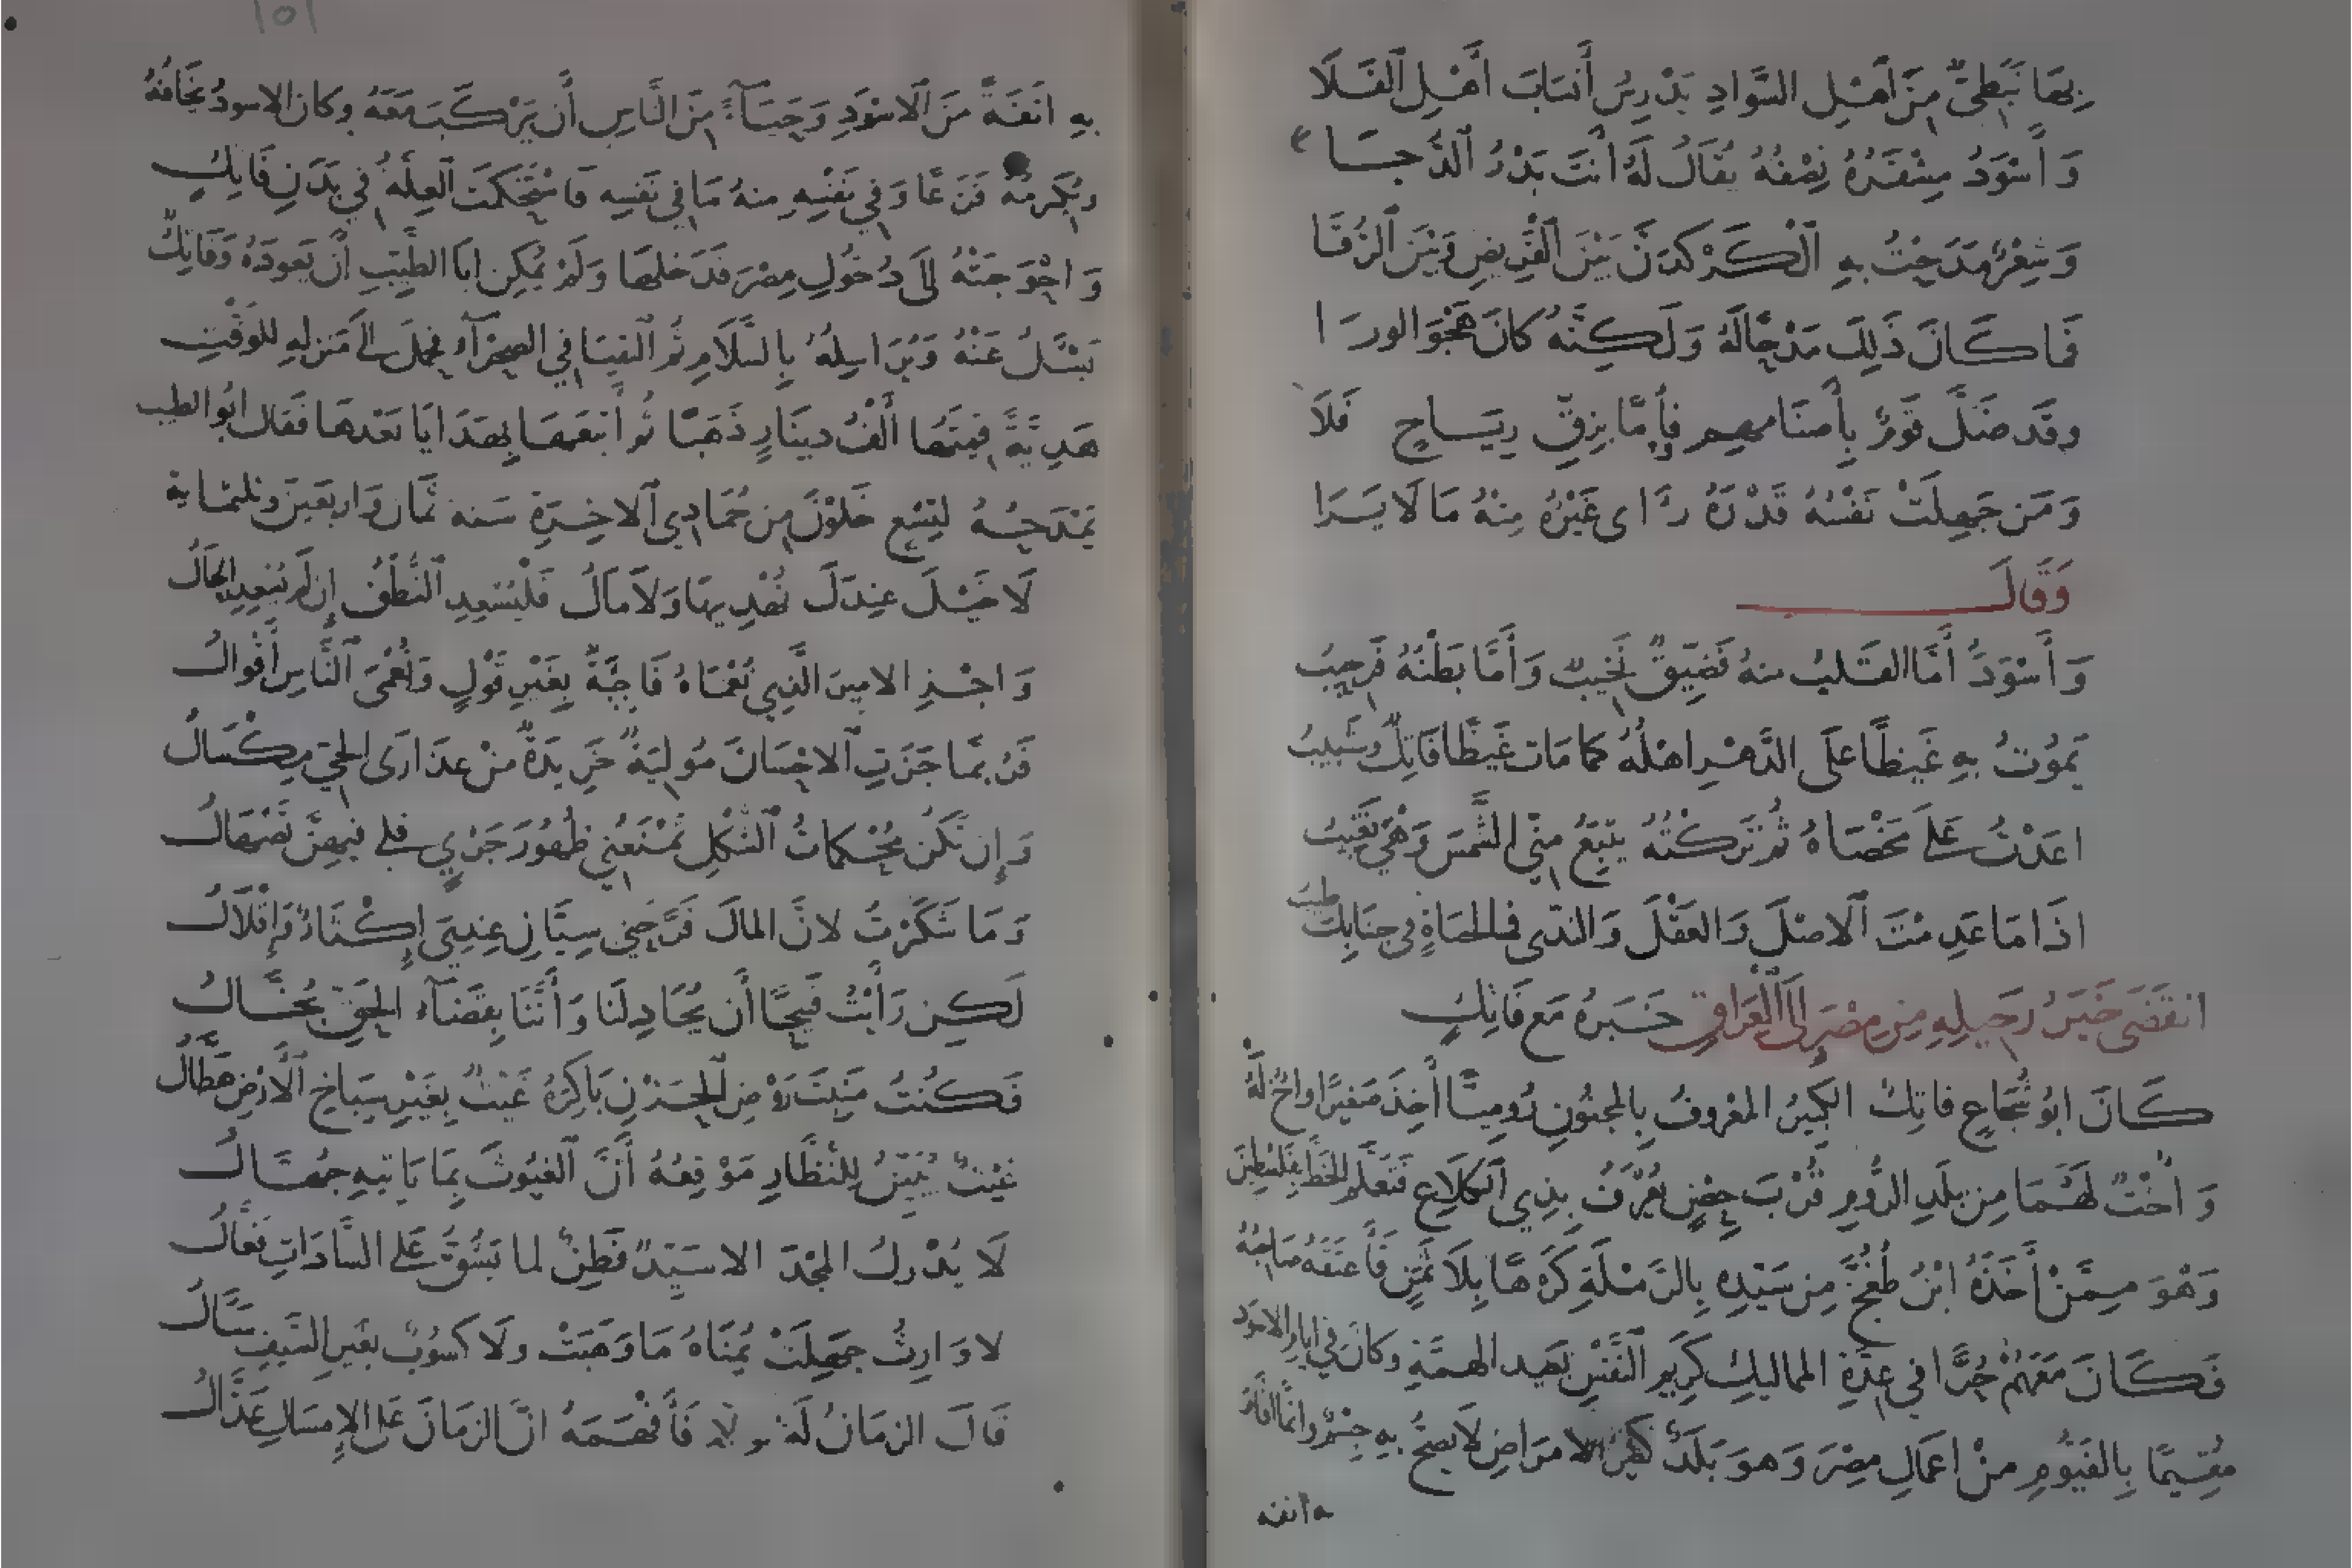 بِهَا نَبَطِيٌّ مِنَ أَهْلِ السَّوَادِ يُدَرِسُ أَنسَابَ أَهْلِ الفَلَا
وَأَسْوَدُ مِشْفَرُهُ نِصْفُهُ يُقَالُ لَهُ أَنتَ بَدْرُ الدُّجَا
وَشِعْرٌ مَدَحْتُ بِهِ الْكَرْكَدَنَّ بَيْنَ القَرِيضِ وَبَيْنَ الرُقَا
فَمَا كَانَ ذَلِكَ مَدْحًا لَهُ وَلَكِنَّهُ كَانَ هَجْوَ الوَرَا
وقَد ضَلَّ قَومٌ بِأَصنَامِهِم فأَمَّا بِزِقِّ رِيَاحٍ فَلَا
وَمَن جَهِلَتْ نَفْسُهُ قَدْرَهُ رَأى غَيْرُهُ مِنْهُ مَا لَا يَرَا
وَقَالَ
وَأَسْوَدُ أَمَّا القَلبُ منهُ فَضَيِّقٌ نَخيبٌ وَأَمَّا بَطْنُهُ فَرحِيبُ
يَمُوتُ بِهِ غَيظًا عَلَى الدَّهْرِ اهْلُهُ كما مَات غَيظًا فَاتِكٌ وشَبِيبُ
اعَدْتُ عَلَى مَخْصَاهُ ثُمَّ تَرَكْتُهُ يُتَبِّعُ مِنّي الشَّمْسَ وَهْيَ تَغِيبُ
اذَا مَا عَدِمْتَ الاصْلَ وَالعَقْلَ وَالندَى فما لحَيَاةٍ في جنَابِكَ طيبُ
انقَضَى خَبَرُ رَحِيلِهِ مِن مِصْرَ إِلَى العِرَاقِ خَبَرُهُ مَعَ فَاتِكٍ
كَانَ ابُو شُجَاعٍ فاتِكٌ الكَبِيرُ المعْرُوفُ بِالمجنُونِ رُومِيًّا أُخِذَ صَغِيرًا وأخٌ لَهُ
وَأُخْتٌ لَهُمَا مِن بَلَدِ الرُّومِ قُرْبَ حِصْنٍ يُعْرَفُ بِذِي الكلَاعِ فَتَعَلَّمَ الخَطَّ بِفَلِسْطِينَ
وَهْوَ مِمَّنْ أَخَذَهُ ابْنُ طُغْجٍّ مِن سَيْدِهِ بِالرَّمْلَةِ كَرْهًا بِلَا ثَمَنٍ فَأَعتَقَهُ صَاحِبُهُ
فَكَانَ مَعَهُمْ حُرًّا في عِدَّةِ المماليكِ كَرِيمَ النَّفْسِ بَعِيد الهِمَّةِ وكَانَ في ايامِ الاسود
مُقِيمًا بِالفَيُّومِ مِنْ اعمَالِ مِصْرَ وَهوَ بَلَدٌ كَثِيرُ الأمرَاضِ لَا يصِحُّ بِهِ جِسْمٌ وانمَّا اقَامَ
به انفه
١٥١
بِهِ انَفَةً مَنَ الاسْوَدِ وَحَيَاءً مِنَ النَّاسِ أَن يَرْكَبَ مَعَهُ وكانَ الاسودُ يَخَافُهُ
ويُكرمُهُ فَزَعًا وَفي نَفْسِهِ منهُ مَا في نَفسِه فَاسْتَحْكَمَتْ العِلَّةُ في بَدَنِ فَاتِكٍ
وَاحْوَجَتْهُ الَى دُخُولِ مِصْرَ فَدَخَلهَا وَلَمْ يُمكِن ابَا الطَّيِّبِ أَنْ يَعودَهُ وَفَاتِكٌ
يَسْئَلُ عَنْهُ وَيُرَاسِلُهُ بِالسَّلَامِ ثُمَّ التَقيَا في الصحْرَآءِ فحمَلَ الَى مَنزِلِهِ لِلوَقْتِ
هَدِيَّةً قيمَتُهَا أَلْفُ دينَارٍ ذَهَبًا ثُمَّ أَتبَعَهَا بِهَدَايَا بَعْدهَا فَقَالَ ابُو الطيب
يَمْدَحُهُ لِتِسْعٍ خَلَوْنَ مِن جُمَادِى الاخِرَةِ سَنَة ثَمَانٍ وَاربَعِينَ وثلثمائة
لَا خَيْلَ عِندَكَ تُهْدِيهَا وَلَا مَالُ فَلْيُسْعِدِ النُّطْقُ إِن لَم يُسْعِدِ الحَالُ
وَاجْزِ الامِيرَ الَّذِي نُعْمَاهُ فَاجِئَةٌ بِغَيْرِ قَوْلٍ وَنُعْمَى النَّاسِ أَقْوَالُ
فَرُبَّمَا جَزَتِ الاحْسَانَ مُولِيَهُ خَرِيدَةٌ مِنْ عَذَارَى الحَيِّ مِكْسَالُ
وَإِن تَكُن مُحْكَمَاتُ الشَّكْلِ تَمْنَعُنِي ظُهُورَ جَرْيٍ فَلي فيهِنَّ تَصْهَالُ
وَمَا شَكَرْتُ لانَّ المالَ فَرَّحَني سِيَّانِ عِندِيَ إِكْثَارٌ وَإِقْلَالُ
لَكِن رَأَيْتُ قَبِيحًا أَن يُجَادَ لَنَا وَأَنَّنَا بِقَضَآءِ الحَقِّ بُخَّالُ
فَكُنتُ مَنبِتَ رَوْضِ الحَزْنِ بَاكِرَهُ غَيْثٌ بِغَيْرِ سِبَاخِ الأرْضِ هَطَّالُ
غَيْثٌ يُبَيّنُ لِلنُّظَّارِ مَوْقِعُهُ أَنَّ الغُيُوثَ بِمَا يَاتيهِ جُهَّالُ
لَا يُدْرِكُ المَجْدَ الا سَيِّدٌ فَطِنٌ لما يَشُقُّ عَلَى السَّادَاتِ فَعَّالُ
لا وَارِثٌ جَهِلَتْ يُمنَاهُ مَا وَهَبَتْ ولَا كَسُوبٌ بغَيرِ السَيفِ سَئَّالُ
قَالَ الزمَانُ لَهُ قولًا فَأَفْهَمَهُ انَّ الزمَانَ عَلَى الإِمسَاكِ عَذَّالُ